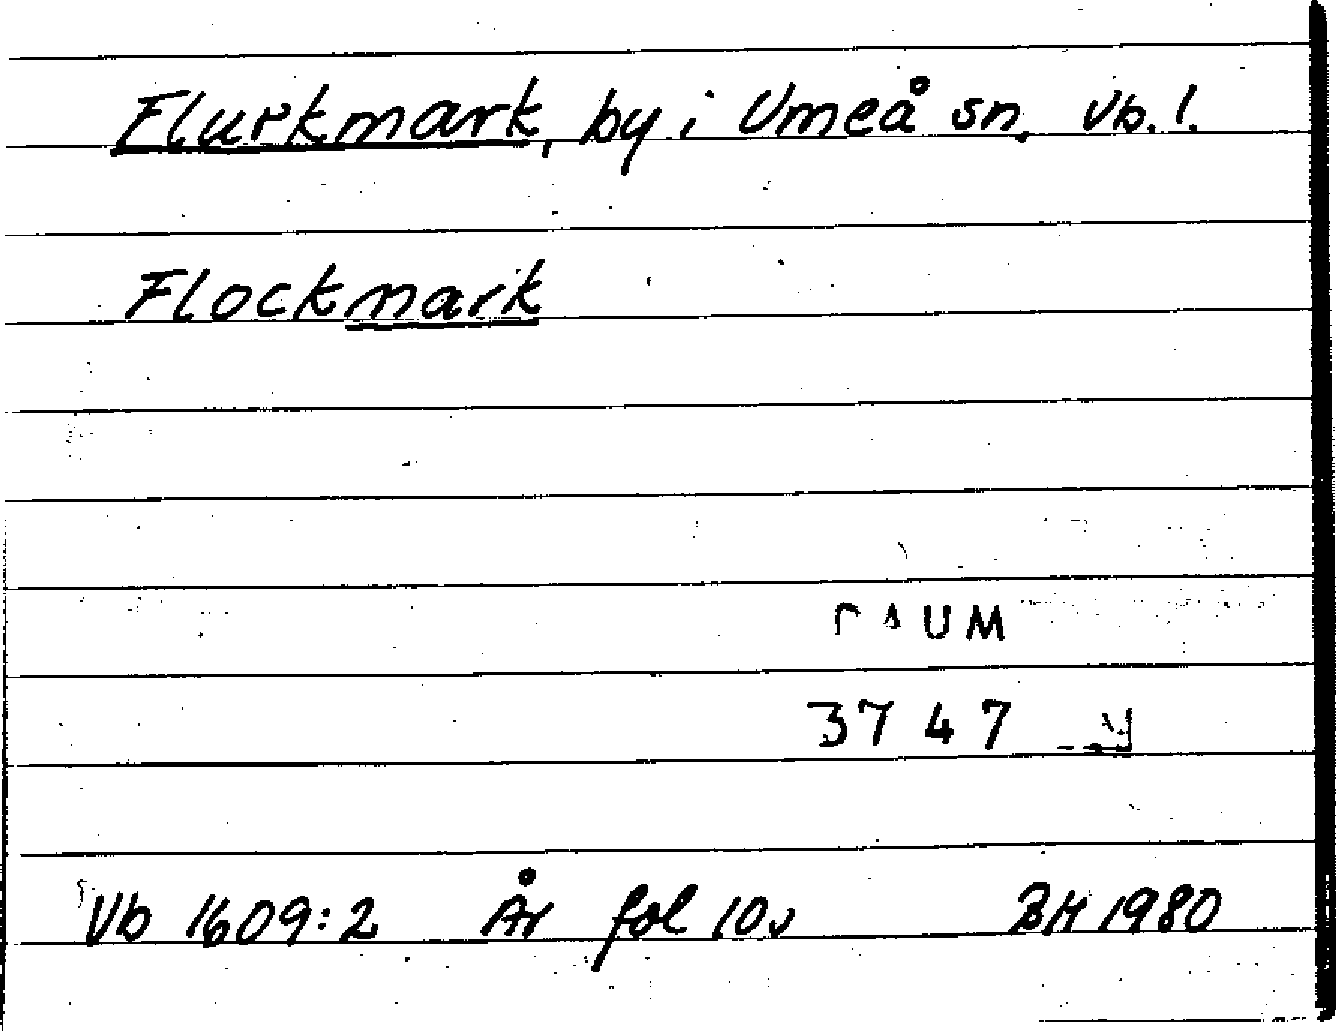 Flurkmark, by i Umeå sn. Vb. l.
Flockmark
DAUM
3747
Vb 1609:2 År fol 10v BH 1980